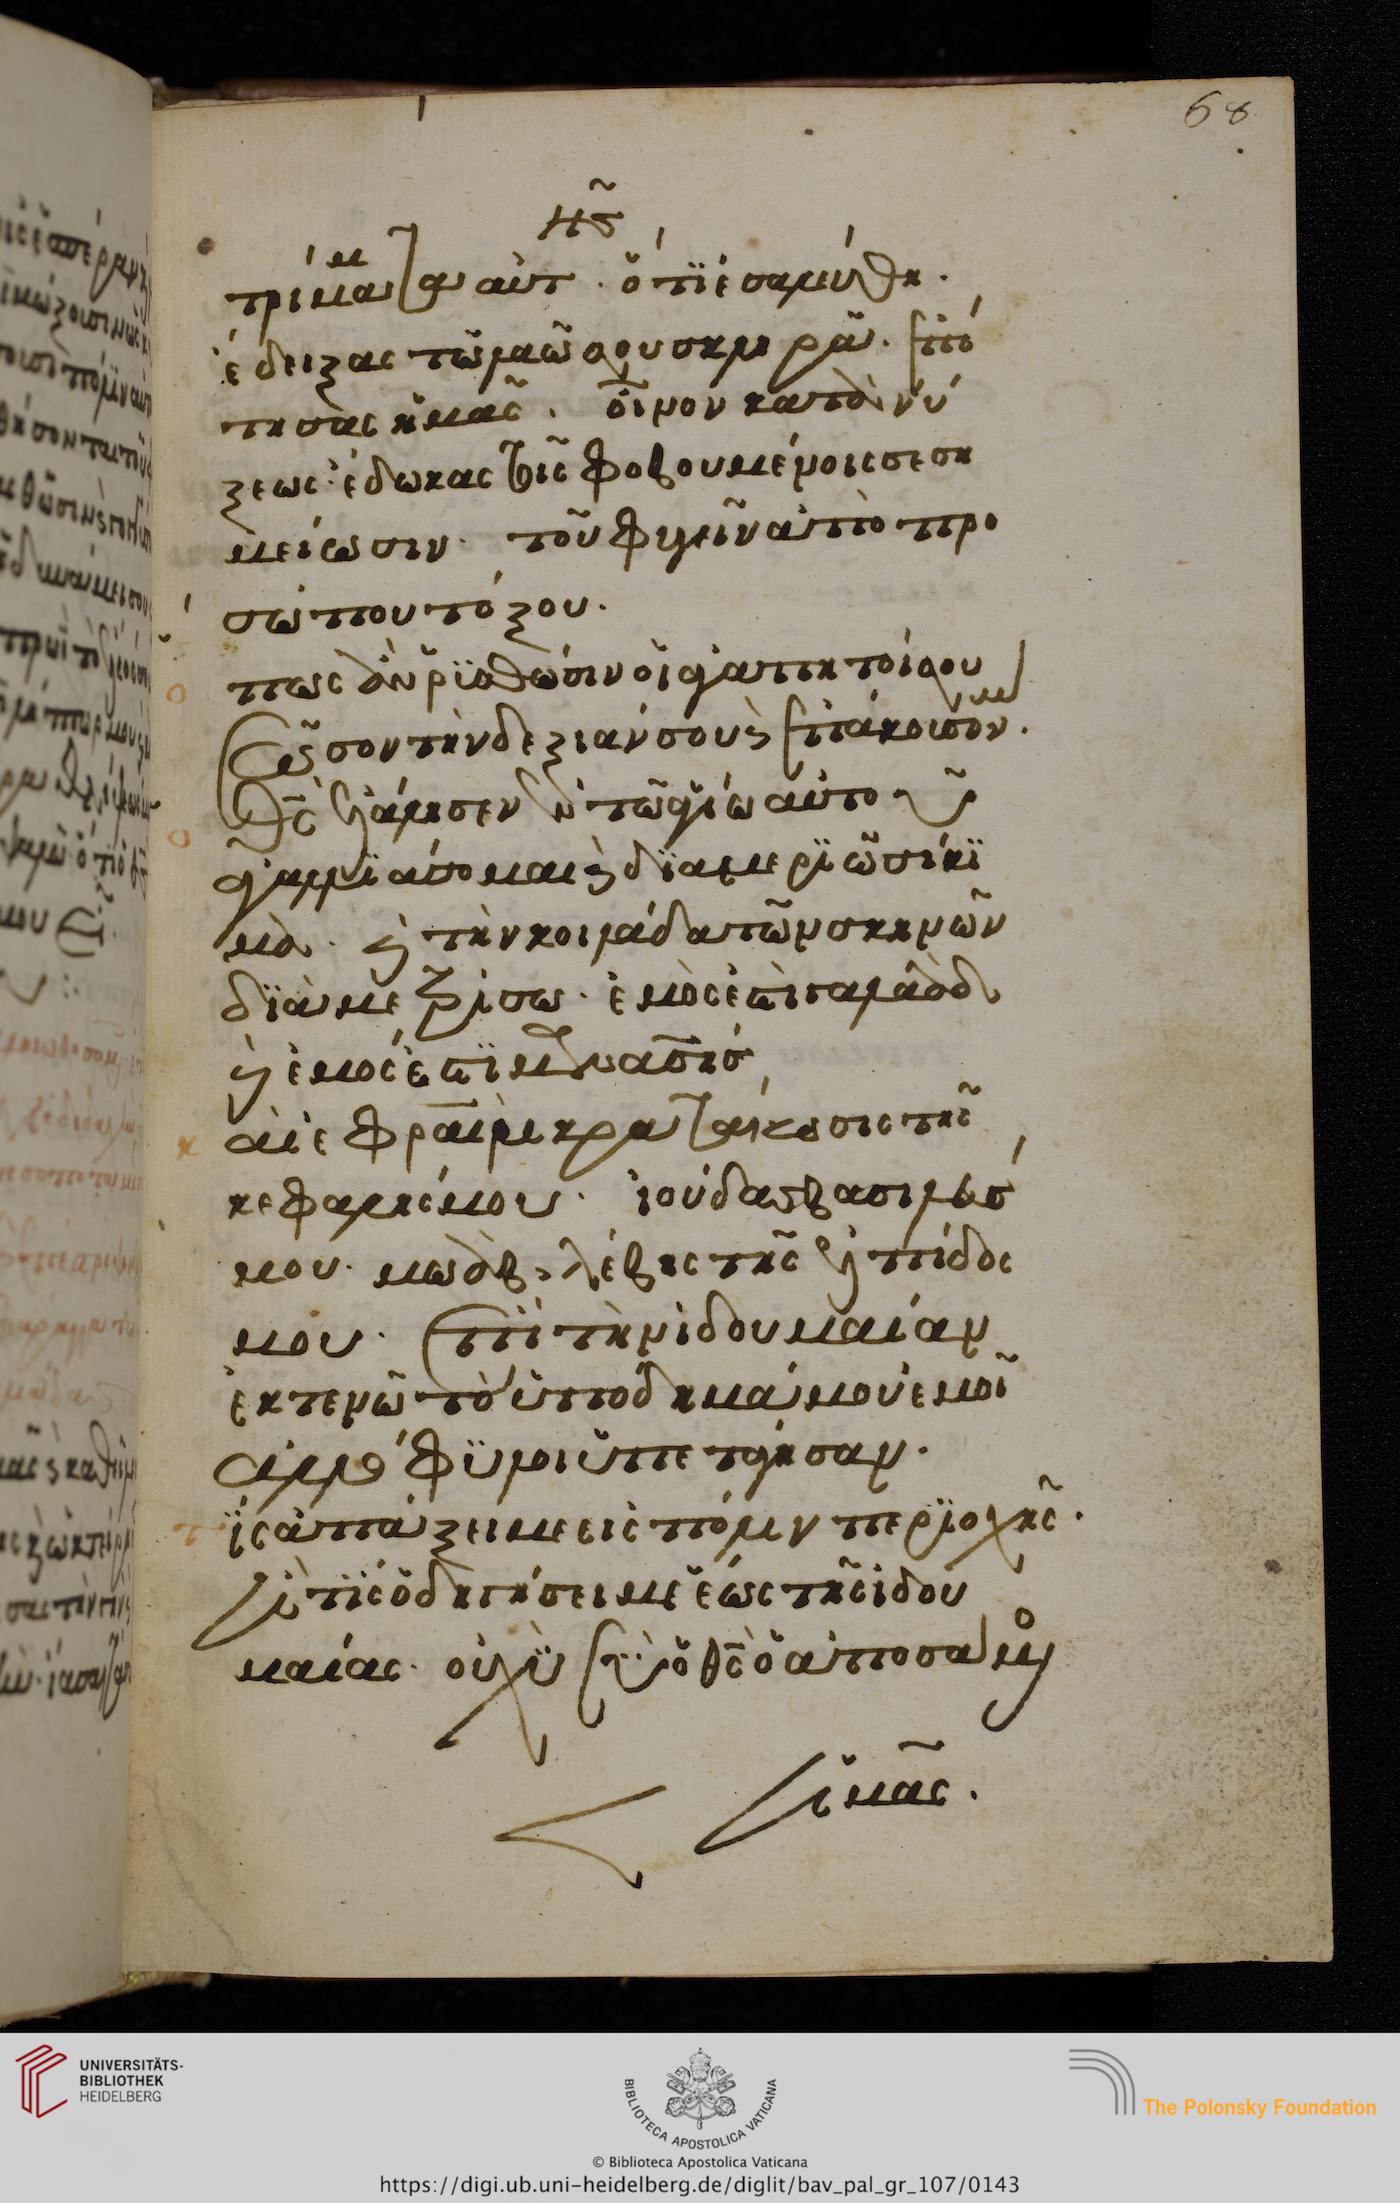 68
νθ
τρίμματα αὐτ. ὅτι ἐσαλεύθη.
ἔδειξας τῶ λαῶ σου σκληρά. ἐπό
τησας ἡμᾶς. οἶνον κατανύ
ξεως· ἔδωκας τοῖς φοβουμένοις σε ση
μείωσιν. τοῦ φυγεῖν ἀπὸ προ
σώπου τόξου.
πως ἂν ῥυσθῶσιν οἱ ἀγαπητοί σου
σῶσον τὴν δεξιάν σου κ ἐπάκουσόν μου.
Ὁ θς ἐλάλησεν ἐν τῶ ἁγίω αὐτοῦ
ἀγαλλιάσομαι κ διαμεριῶ σίκι
μα. κ τὴν κοιλάδα τῶν σκηνῶν
διαμετρήσω. ἐμός ἐστι γαλαὰδ
κ ἐμός ἐστι μανασσής
κ ἐφραῒμ κραταίωσις τῆς
κεφαλῆς μου. ἰούδας βασιλεύς
μου. μωὰβ λέβης τῆς ἐλπίδος
μου. ἐπὶ τὴν ἰδουμαίαν
ἐκτενῶ τὸ ὑπόδημά μου ἐμοὶ
ἀλλόφυλοι ὑπετάγησαν.
τίς ἀπάξει με εἰς πόλιν περιοχῆς.
ἢ τίς ὁδηγήσει με ἕως τῆς ἰδου
μαίας. οὐχὶ σὺ ὁ θς ὁ ἀπωσάμενος
ἡμᾶς.
UNIVERSITÄTS-
BIBLIOTHEK
HEIDELBERG
BIBLIOTECA APOSTOLICA VATICANA
The Polonsky Foundation
© Biblioteca Apostolica Vaticana
https://digi.ub.uni-heidelberg.de/diglit/bav_pal_gr_107/0143